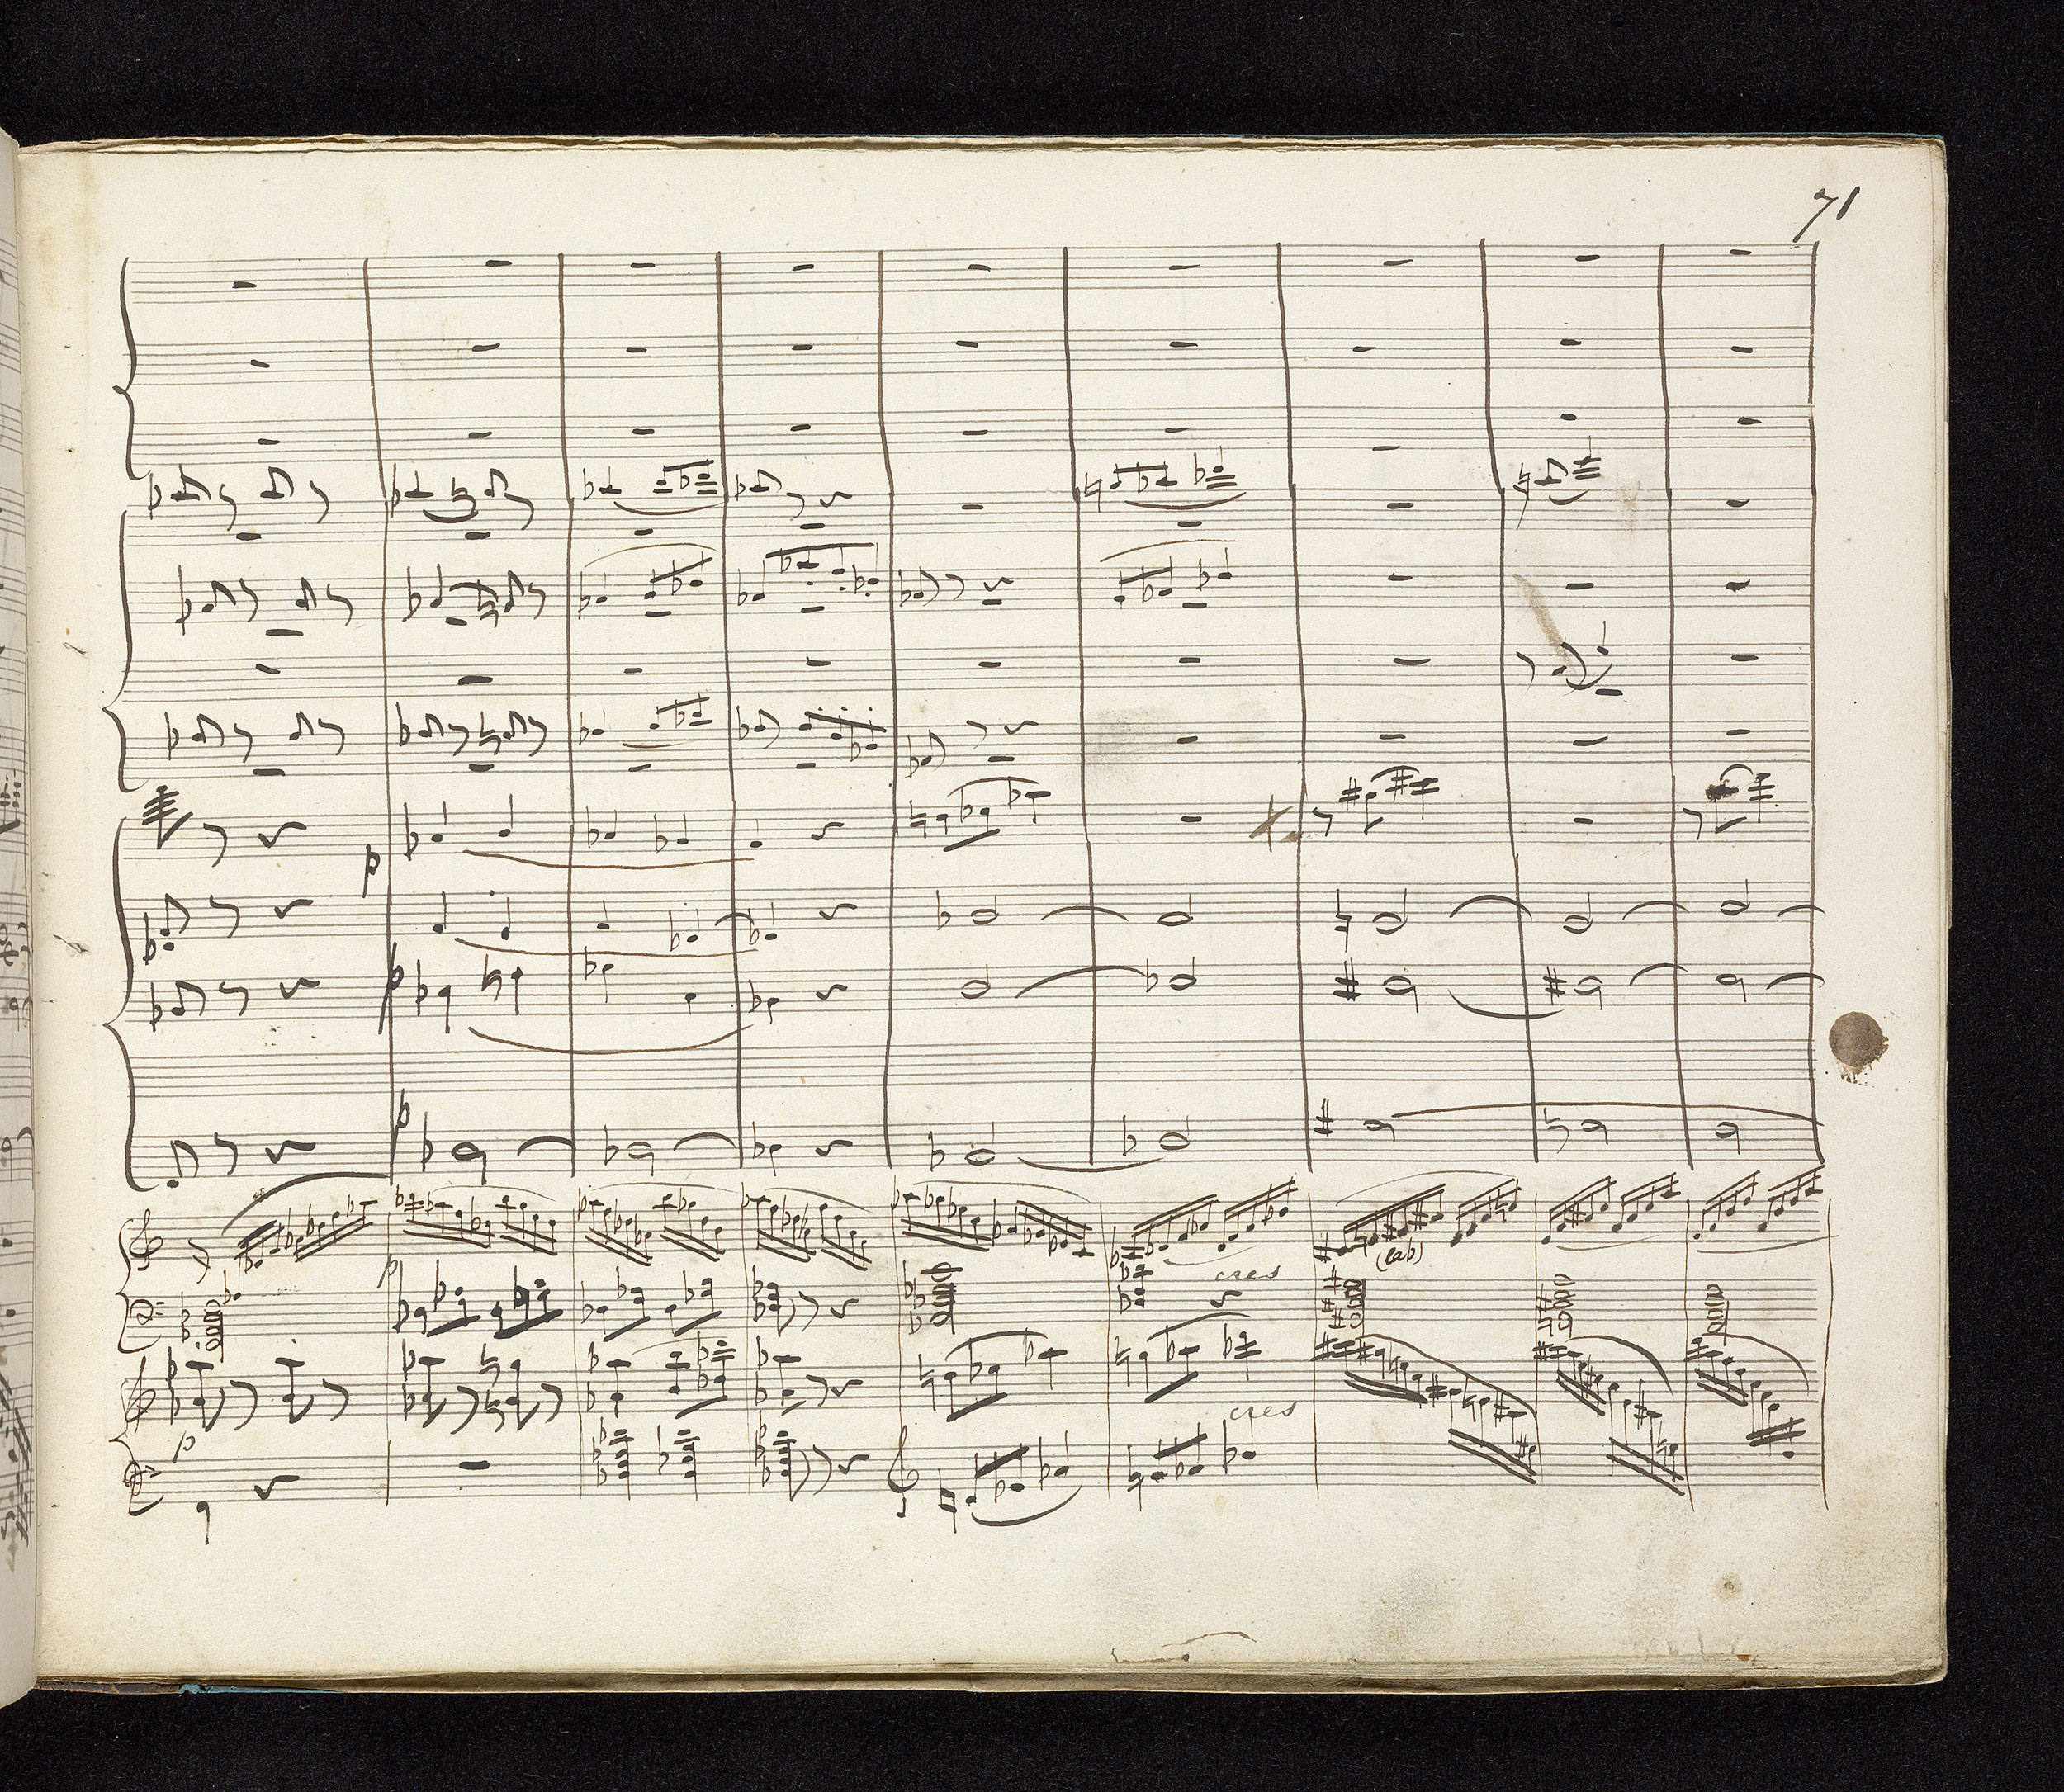 71
p
p
p
p
cres
(lab)
p
cres